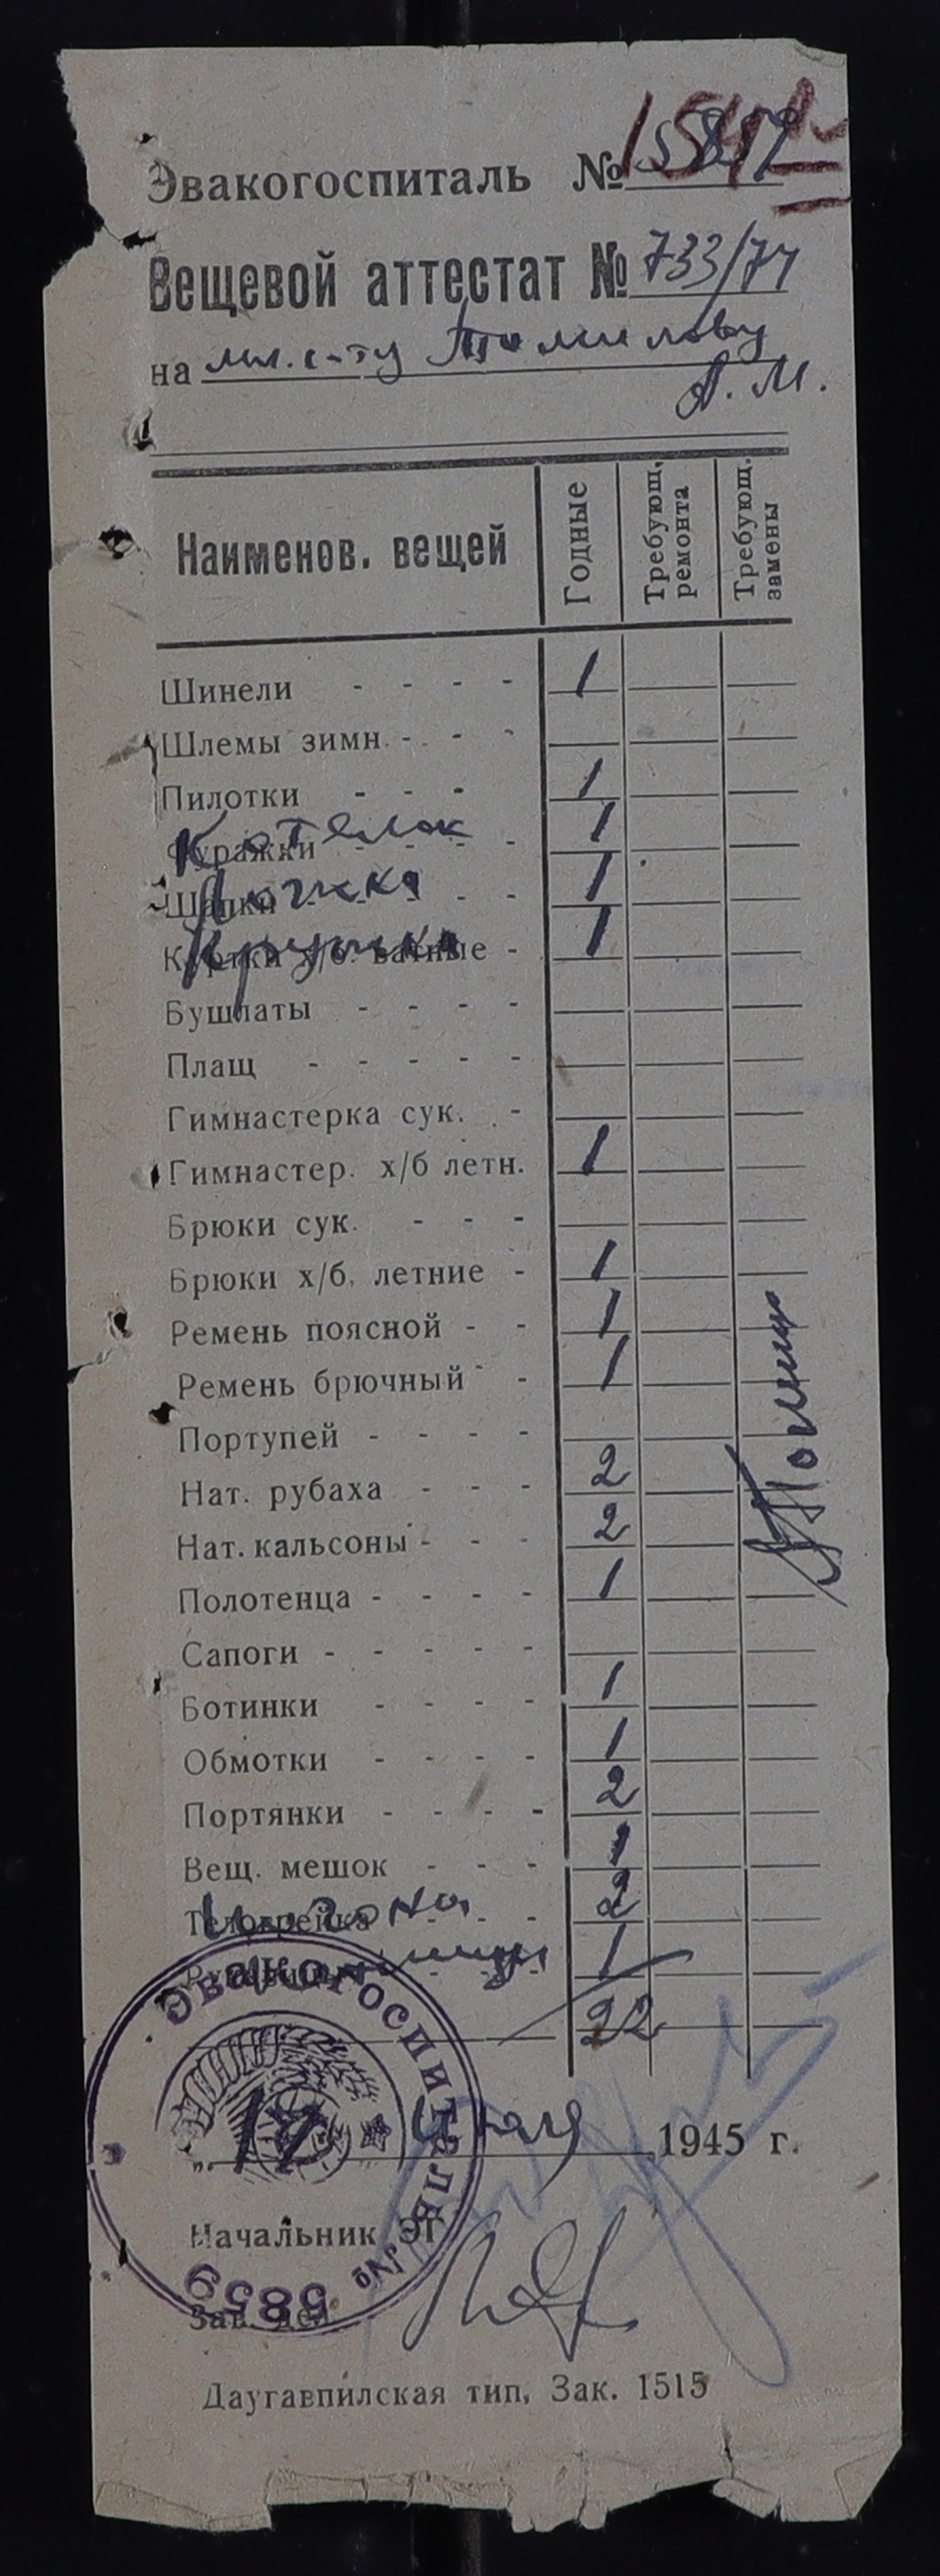 Эвакогоспиталь № 5859
Вещевой аттестат № 733/74
на мл. с-ту Томилову
А. М.
Наименов. вещей Годные Требующ. ремонта Требующ. замены
Шинели - - - - 1
Шлемы зимн. - - -
Пилотки - - - 1
Фуражки - - - - Котелок 1
Шапки - - - - Ложка 1
Куртки х/б. ватные - Кружка 1
Бушлаты - - - -
Плащ - - - - -
Гимнастерка сук. -
Гимнастер. х/б летн. 1
Брюки сук. - - -
Брюки х/б. летние - 1
Ремень поясной - - 1
Ремень брючный - - 1
Портупей - - - -
Нат. рубаха - - - 2
Нат. кальсоны - - - 2
Полотенца - - - - 1
Сапоги - - - - -
Ботинки - - - - 1
Обмотки - - - - 1
Портянки - - - - 2
Вещ. мешок - - - 1
Телогрейка - - - 2
1
22
„17" июля 1945 г.
Начальник ЭГ
Зав. дел.
Эвакогоспиталь № 5859
Даугавпилская тип, Зак. 1515